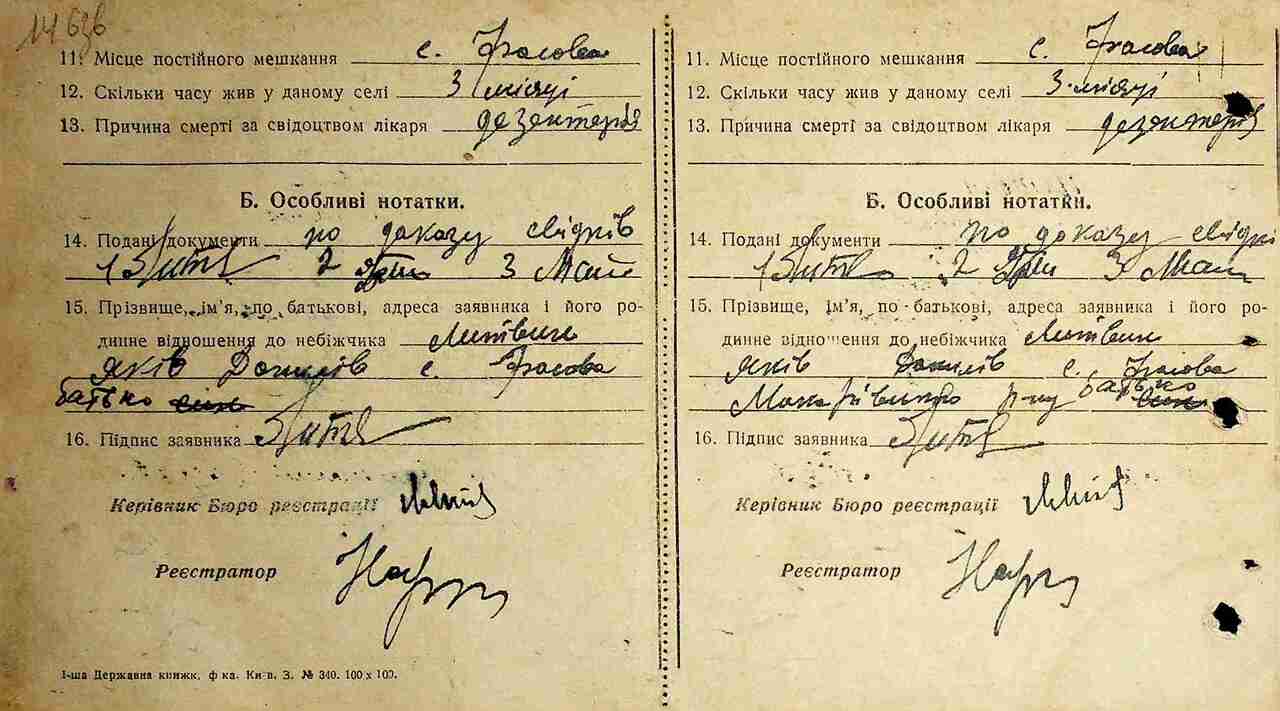 14636
11. Місце постійного мешкання с. Фасова
12. Скільки часу жив у даному селі 3 місяці
13. Причина смерті за свідоцтвом лікаря дезентерія
Б. Особливі нотатки.
14. Подані документи по доказу свідків
1 2 3
15. Прізвище, ім’я, по батькові, адреса заявника і його ро-
динне відношення до небіжчика Литвин
Яків Данилів с. Фасова
батько син
16. Підпис заявника
Керівник Бюро реєстрації
Реєстратор
1-ша Державна книжк. ф-ка. Київ. З. № 340. 100 х 100.
11. Місце постійного мешкання с. Фасова
12. Скільки часу жив у даному селі 3 місяці
13. Причина смерті за свідоцтвом лікаря дезентерія
Б. Особливі нотатки.
14. Подані документи по доказу свідків
1 2 3
15. Прізвище, ім’я, по батькові, адреса заявника і його ро-
динне відношення до небіжчика Литвин
Яків Данилів с. Фасова
Макарівського р-ну батько син
16. Підпис заявника
Керівник Бюро реєстрації
Реєстратор